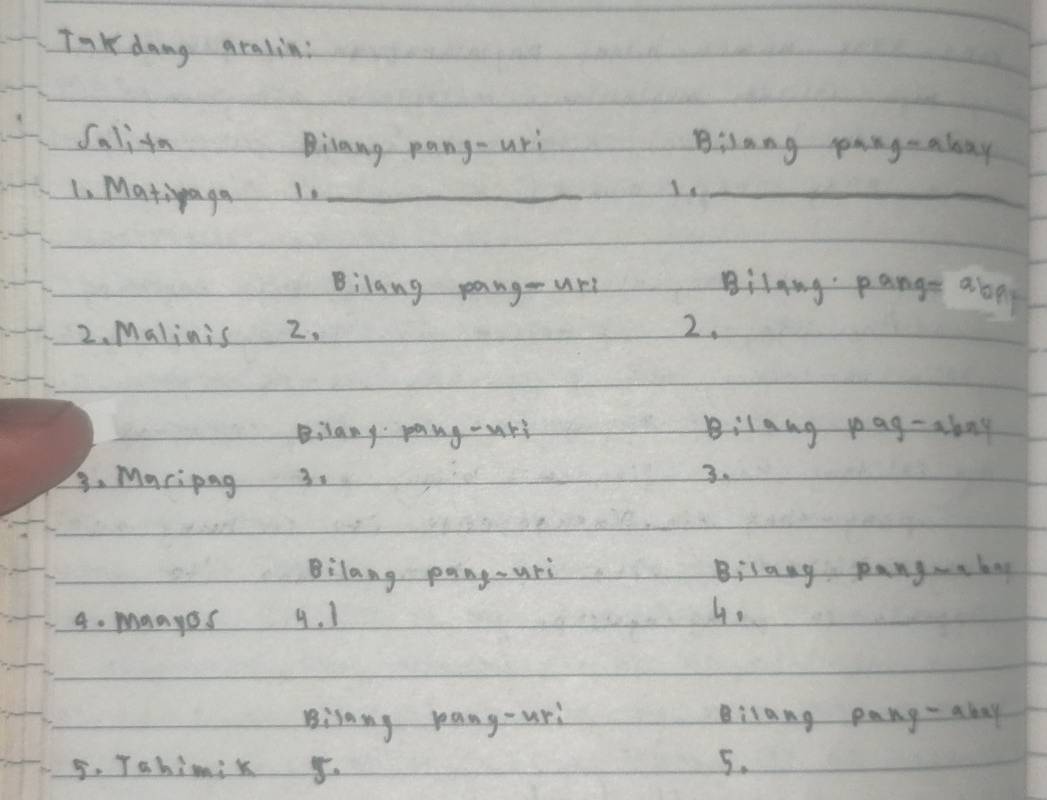 Takdang aralin:
Salita Bilang pang-uri Bilang pang-abay
1. Matiyaga 1. 1.
Bilang pang-uri Bilang pang-abay
2. Malinis 2. 2.
Bilang pang-uri Bilang pag-abay
3. Masipag 3. 3.
Bilang pang-uri Bilang pang-abay
4. Maayos 4. 4.
Bilang pang-uri Bilang pang-abay
5. Tahimik 5. 5.